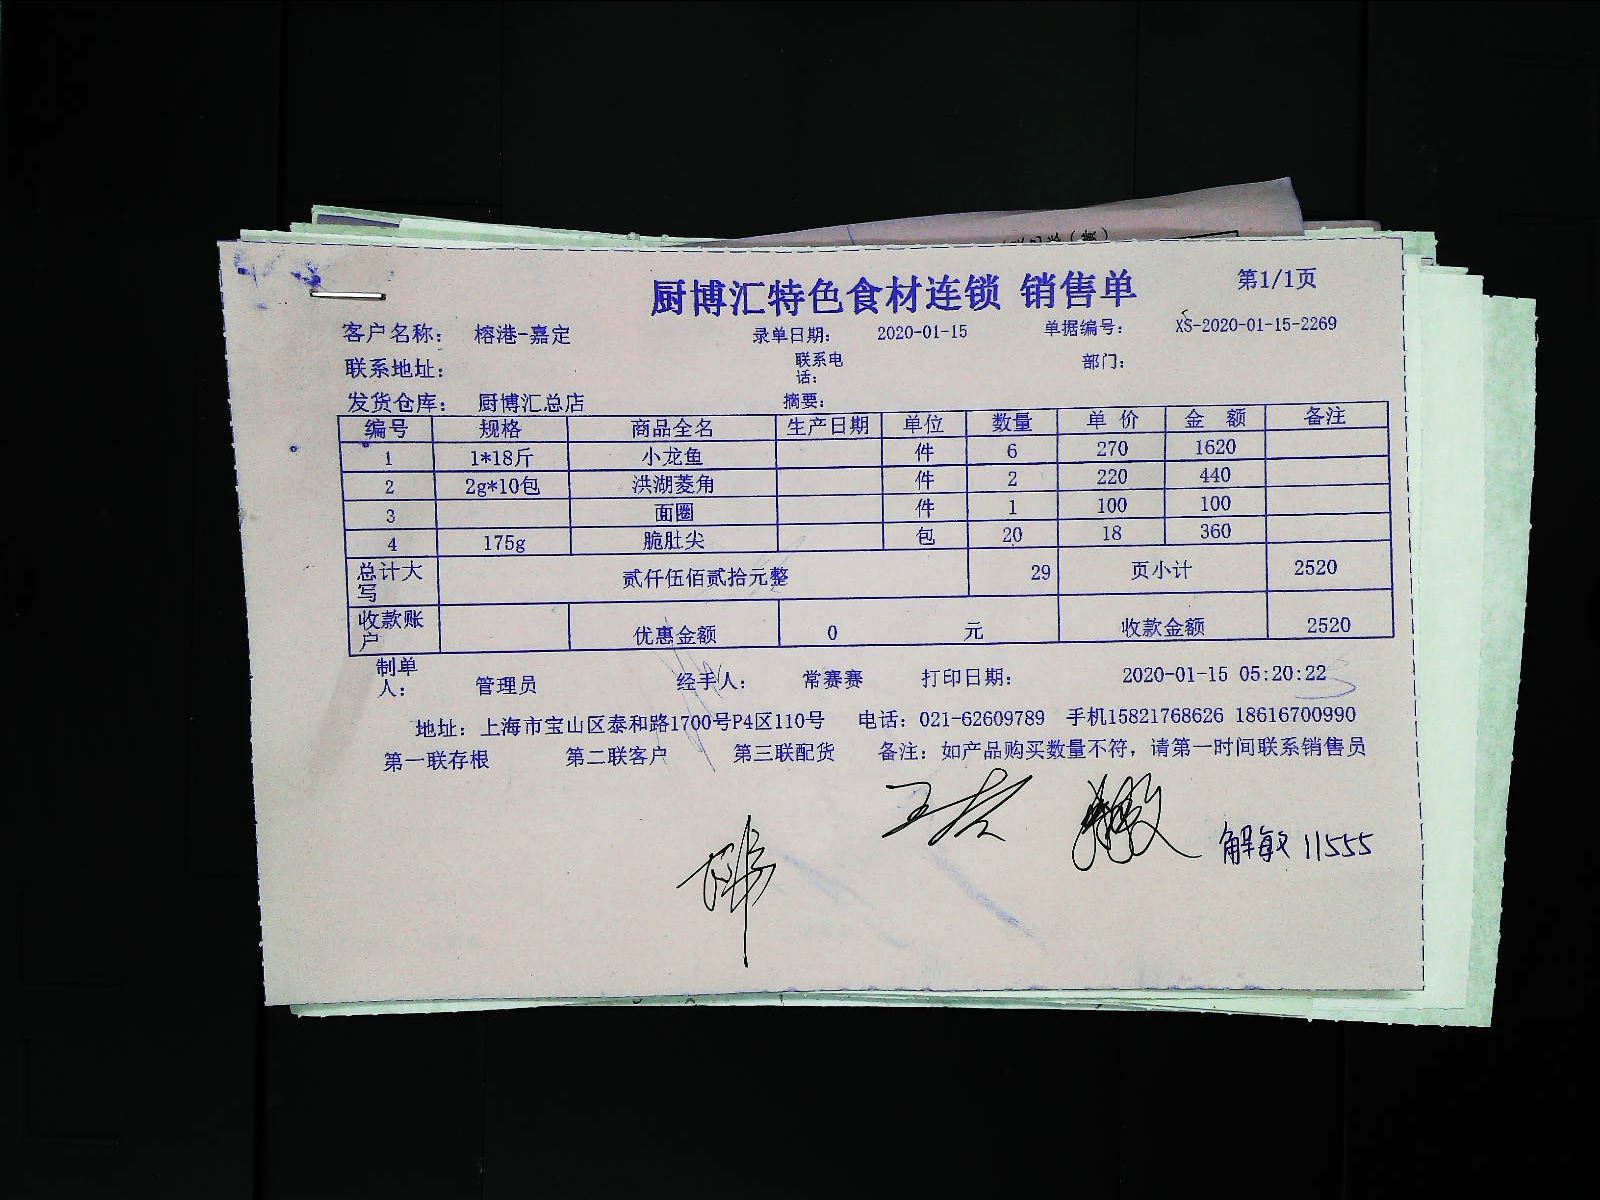 厨博汇特色食材连锁 销售单 第1/1页
客户名称： 榕港-嘉定 录单日期： 2020-01-15 单据编号： XS-2020-01-15-2269
联系地址： 联系电话： 部门：
发货仓库： 厨博汇总店 摘要：
编号 规格 商品全名 生产日期 单位 数量 单价 金额 备注
1 1*18斤 小龙鱼 件 6 270 1620
2 2g*10包 洪湖菱角 件 2 220 440
3 面圈 件 1 100 100
4 175g 脆肚尖 包 20 18 360
总计大写 贰仟伍佰贰拾元整 29 页小计 2520
收款账户 优惠金额 0 元 收款金额 2520
制单人： 管理员 经手人： 常赛赛 打印日期： 2020-01-15 05:20:22
地址：上海市宝山区泰和路1700号P4区110号 电话：021-62609789 手机15821768626 18616700990
第一联存根 第二联客户 第三联配货 备注：如产品购买数量不符，请第一时间联系销售员
解敏 11555